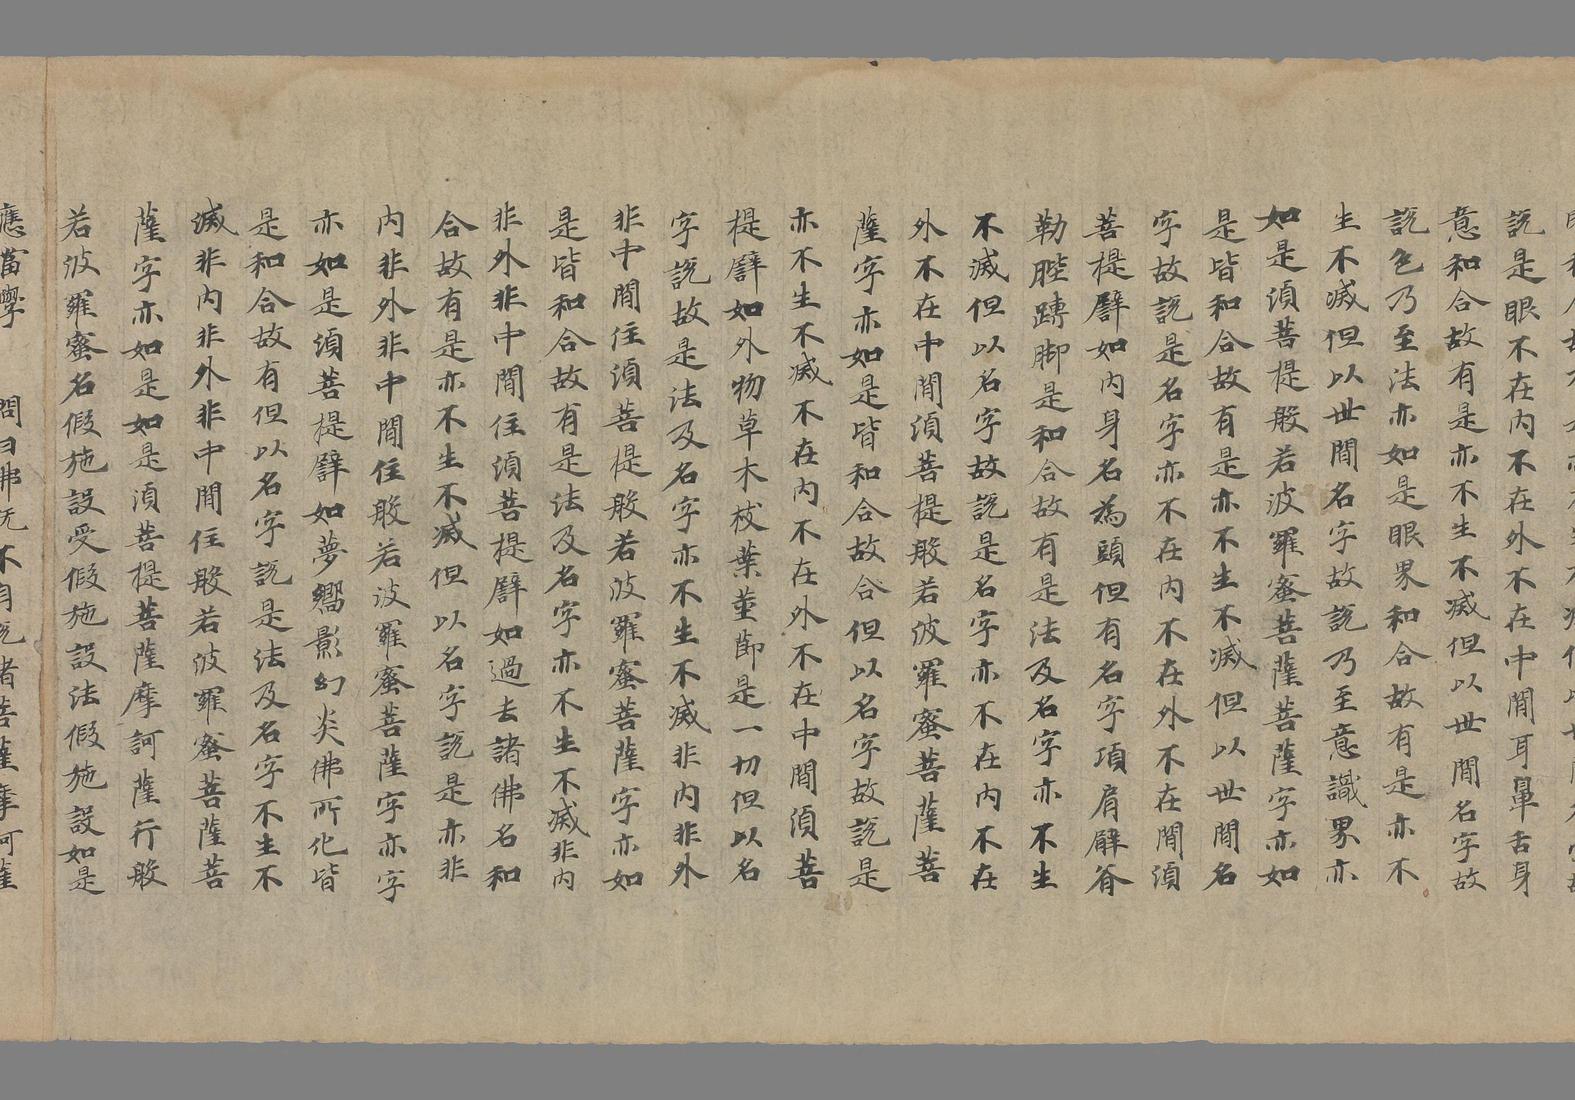 說是眼不在内不在外不在中間耳鼻舌身
意和合故有是亦不生不滅但以世間名字故
說色乃至法亦如是眼界和合故有是亦不
生不滅但以世間名字故說乃至意識界亦
如是須菩提般若波羅蜜菩薩菩薩字亦如
是皆和合故有是亦不生不滅但以世間名
字故說是名字亦不在内不在外不在間須
菩提譬如内身名為頭但有名字項肩臂脊
勒䏶蹲脚是和合故有是法及名字亦不生
不滅但以名字故說是名字亦不在内不在
外不在中間須菩提般若波羅蜜菩薩菩
薩字亦如是皆和合故合但以名字故說是
亦不生不滅不在内不在外不在中間須菩
提譬如外物草木枝葉莖節是一切但以名
字說故是法及名字亦不生不滅非内非外
非中間住須菩提般若波羅蜜菩薩字亦如
是皆和合故有是法及名字亦不生不滅非内
非外非中間住須菩提譬如過去諸佛名和
合故有是亦不生不滅但以名字說是亦非
内非外非中間住般若波羅蜜菩薩字亦字
亦如是須菩提譬如夢嚮影幻炎佛所化皆
是和合故有但以名字說是法及名字不生不
滅非内非外非中間住般若波羅蜜菩薩菩
薩字亦如是如是須菩提菩薩摩訶薩行般
若波羅蜜名假施設受假施設法假施設如是
應當學 問曰佛旡不自說諸菩薩摩訶薩